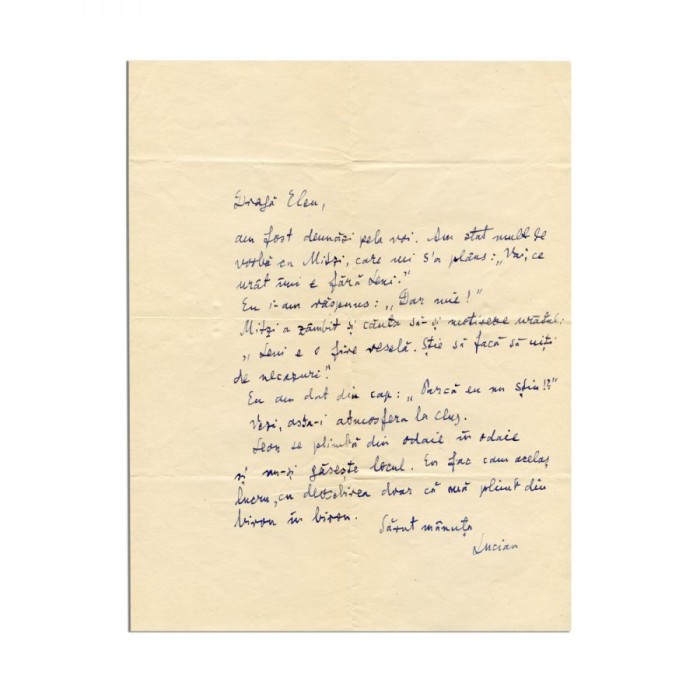 Dragă Elen,
am fost deunăzi pela voi. Am stat mult de
vorbă cu Mitzi, care mi s'a plâns: „Vai, ce
urât îmi e fără Leni."
Eu i-am răspuns: „Dar mie!"
Mitzi a zâmbit și căuta să-și motiveze urâtul:
„Leni e o fire veselă. Știe să facă să uiți
de necazuri."
Eu am dat din cap: „Parcă eu nu știu!?"
Vezi, asta-i atmosfera la Cluj.
Leon se plimbă din odaie în odaie
și nu-și găsește locul. Eu fac cam acelaș
lucru, cu deosebirea doar că mă plimb din
birou în birou.
Sărut mânuța
Lucian